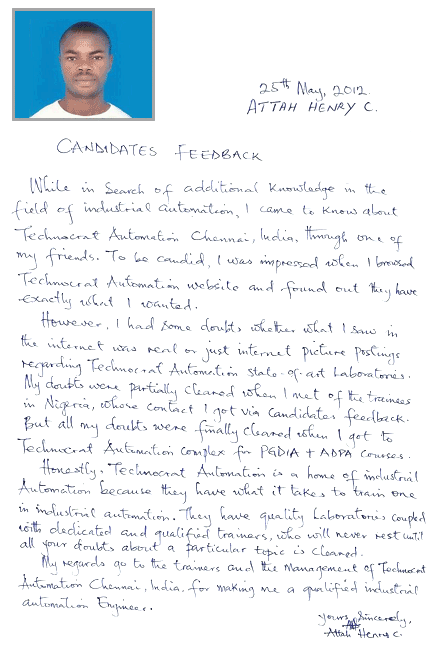 25th May, 2012.
ATTAH HENRY C.
CANDIDATES FEEDBACK
While in search of additional knowledge in the
field of industrial automation, I came to know about
Technocrat Automation Chennai, India, through one of
my friends. To be candid, I was impressed when I browsed
Technocrat Automation website and found out they have
exactly what I wanted.
However, I had some doubts whether what I saw in
the internet was real or just internet picture postings
regarding Technocrat Automation state-of-art Laboratories.
My doubts were partially cleared when I met of the trainees
in Nigeria, whose contact I got via candidates feedback.
But all my doubts were finally cleared when I got to
Technocrat Automation complex for PGDIA + ADPA courses.
Honestly, Technocrat Automation is a home of industrial
Automation because they have what it takes to train one
in industrial automation. They have quality Laboratories coupled
with dedicated and qualified trainers, who will never rest until
all your doubts about a particular topic is cleared.
My regards go to the trainers and the Management of Technocrat
Automation Chennai, India, for making me a qualified industrial
automation Engineer.
Yours Sincerely,
Attah Henry C.